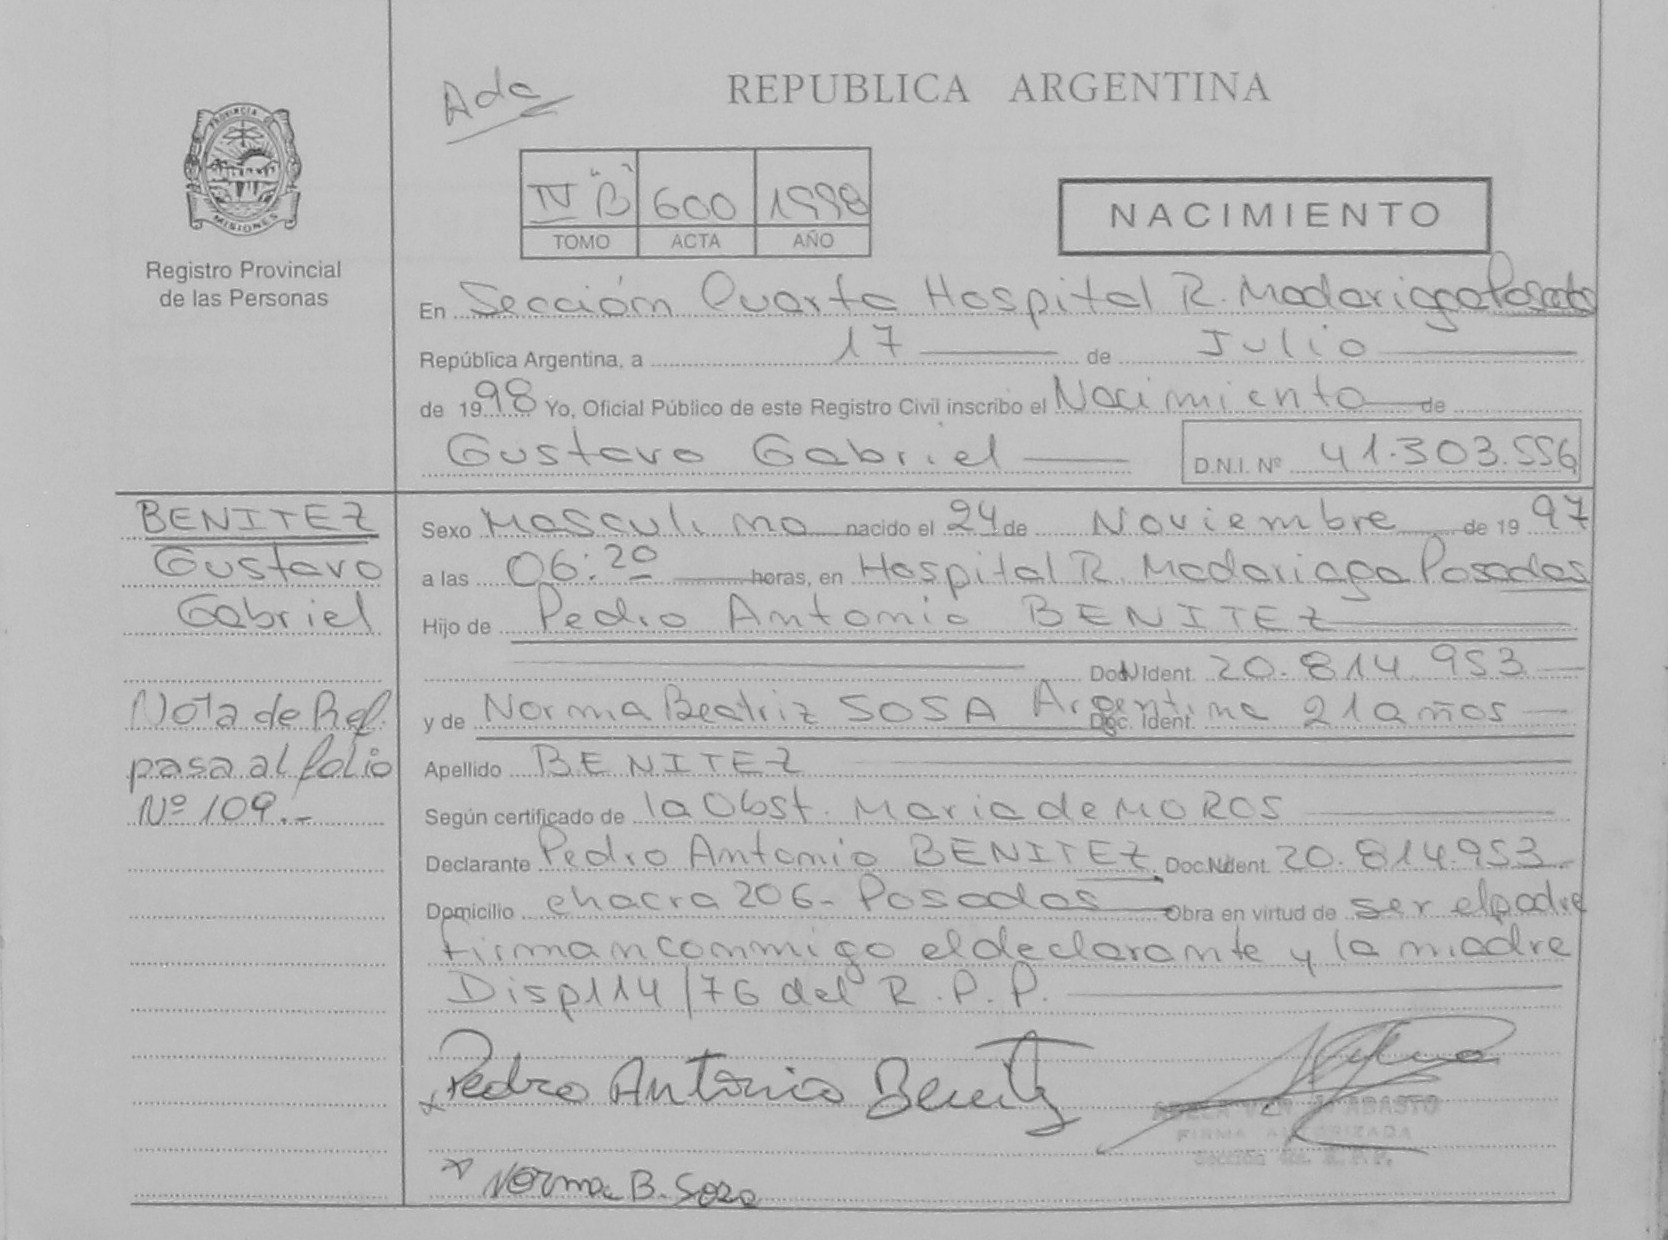 Ada
REPUBLICA ARGENTINA
PROVINCIA DE
MISIONES
Registro Provincial
de las Personas
IV "B" 600 1998
TOMO ACTA AÑO
NACIMIENTO
En Sección Cuarta Hospital R. Madariaga Posadas
República Argentina, a 17 de Julio
de 1998 Yo, Oficial Público de este Registro Civil inscribo el Nacimiento de
Gustavo Gabriel D.N.I. Nº 41.303.556
BENITEZ
Gustavo
Gabriel
Nota de Ref.
pasa al folio
Nº 109.-
Sexo Masculino nacido el 24 de Noviembre de 1997
a las 06:20 horas, en Hospital R. Madariaga Posadas
Hijo de Pedro Antonio BENITEZ
DocNIdent. 20.814.953
y de Norma Beatriz SOSA Argentina Doc. Ident. 21 años
Apellido BENITEZ
Según certificado de la Obst. Maria de MOROS
Declarante Pedro Antonio BENITEZ. Doc.NIdent. 20.814.953.
Domicilio chacra 206- Posadas Obra en virtud de ser el padre
firman conmigo el declarante y la madre
Disp 114/76 del R.P.P.
x Pedro Antonio Benitez
FIRMA AUTORIZADA
x Norma B. Sosa